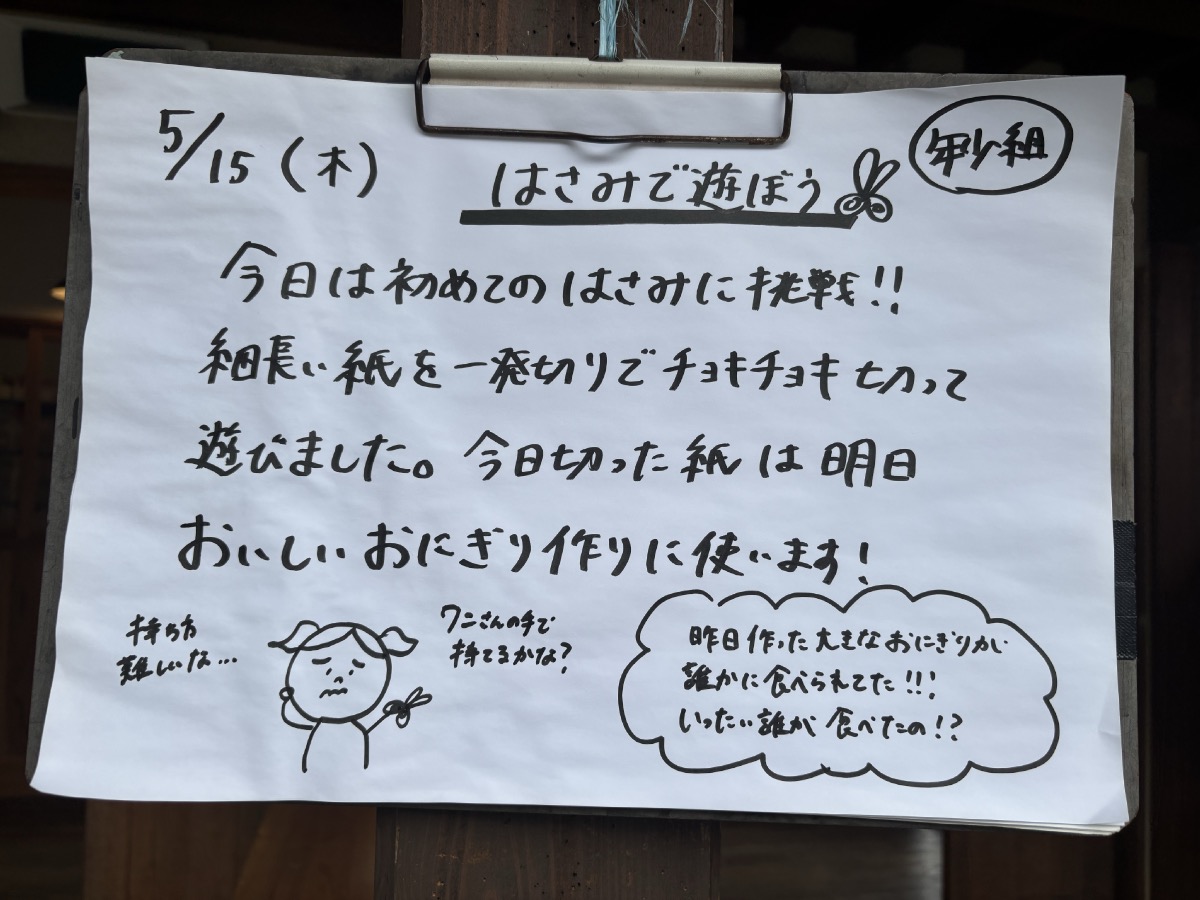 5/15(木)
はさみで遊ぼう
年少組
今日は初めてのはさみに挑戦!!
細長い紙を一発切りでチョキチョキ切って
遊びました。今日切った紙は明日
おいしいおにぎり作りに使います!
持ち方
難しいな...
ワニさんの手で
持てるかな?
昨日作った大きなおにぎりが
誰かに食べられてた!!!
いったい誰が食べたの!?